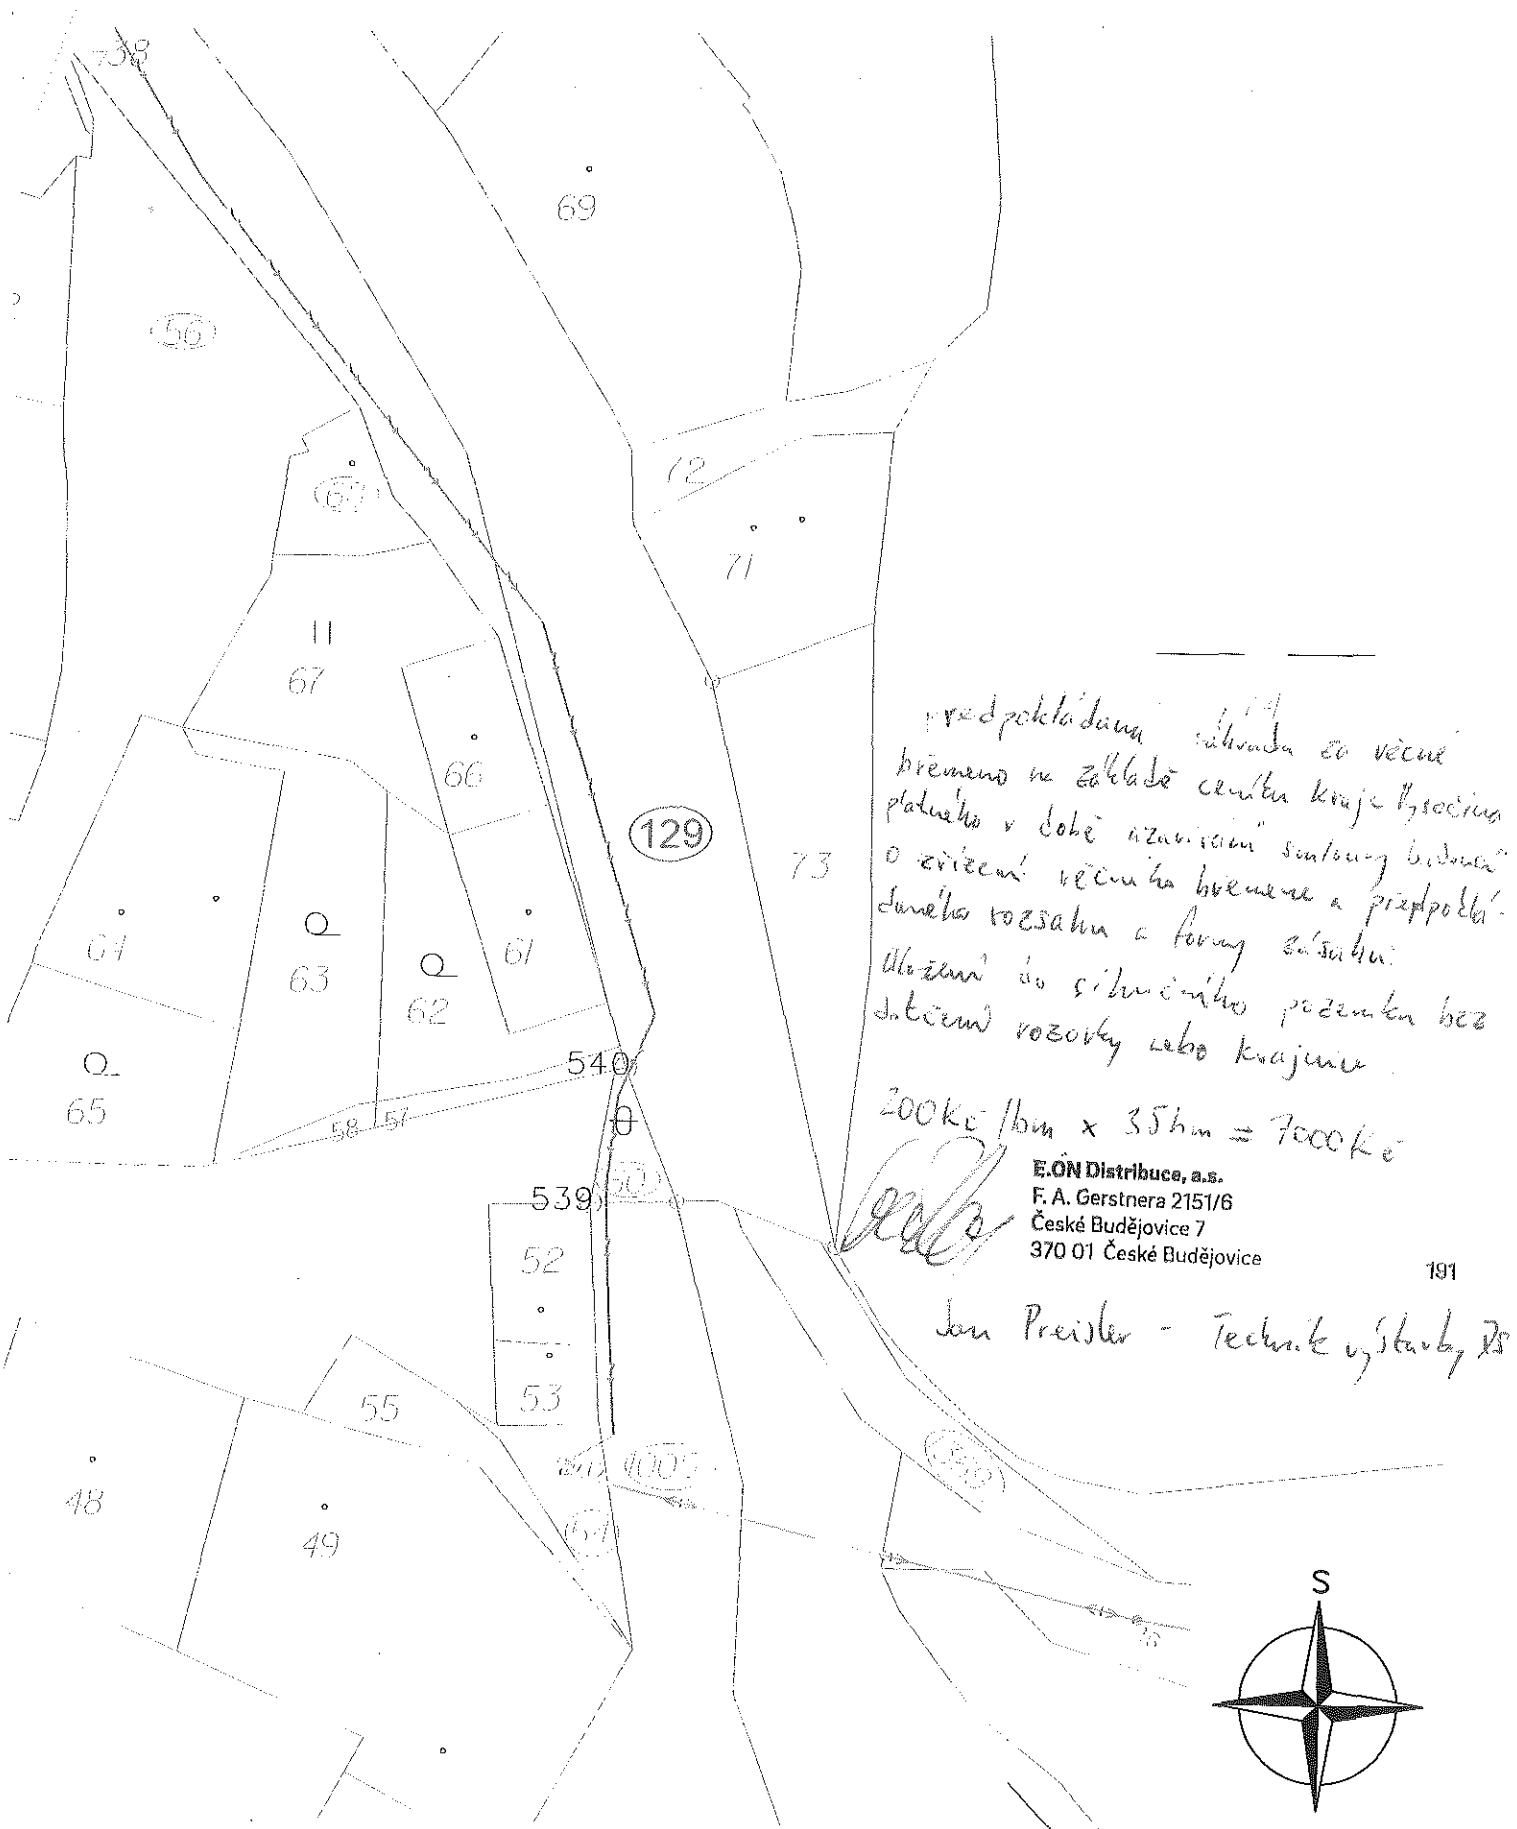 738
69
56
72
67
71
11
67
66
129
73
předpokládaná náhrada za věcné
břemeno na základě ceníku Kraje Vysočina
platného v době uzavírání smlouvy budoucí
o zřízení věcného břemene a předpoklá-
daného rozsahu a formy zásahu:
Uložení do silničního pozemku bez
dotčení vozovky nebo krajnice
200Kč/bm x 35bm = 7000Kč
61
63
62
65
540
58
57
539
52
53
55
48
49
E.ON Distribuce, a.s.
F. A. Gerstnera 2151/6
České Budějovice 7
370 01 České Budějovice
191
Jan Preisler - Technik výstavby DS
S